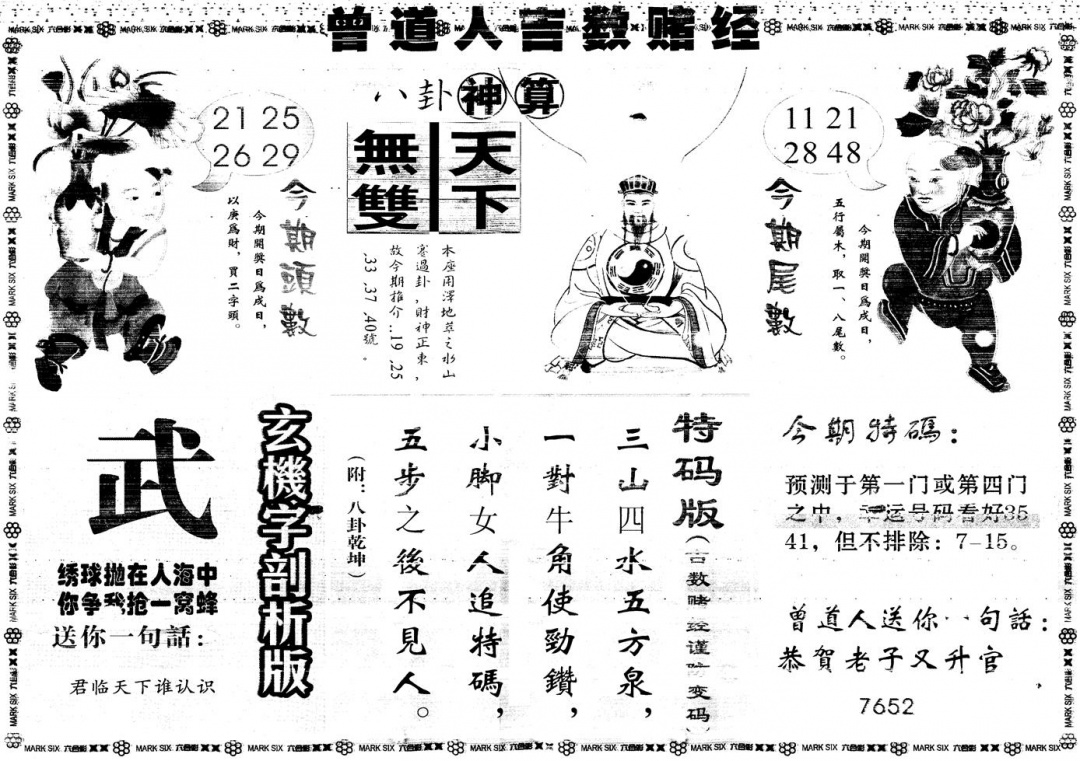 曾道人吉数赌经
八卦神算
天下
無雙
21 25
26 29
今期頭數
今期開獎日爲戌日，
以庚爲財，買二字頭。
本座用澤地萃之水山
蹇過卦，財神正東，
故今期推介..19.25
.33.37.40號。
11 21
28 48
今期尾數
今期開獎日爲戌日，
五行屬木，取一、八尾數。
武
绣球抛在人海中
你争我抢一窝蜂
送你一句話：
君临天下谁认识
玄機字剖析版
特码版
（吉数赌经谨防变码）
三山四水五方泉，
一對牛角使勁鑽，
小脚女人追特碼，
五步之後不見人。
（附：八卦乾坤）
今期特碼：
预测于第一门或第四门
之中，幸运号码看好35
41，但不排除：7-15。
曾道人送你一句話：
恭賀老子又升官
7652
MARK SIX 六合彩